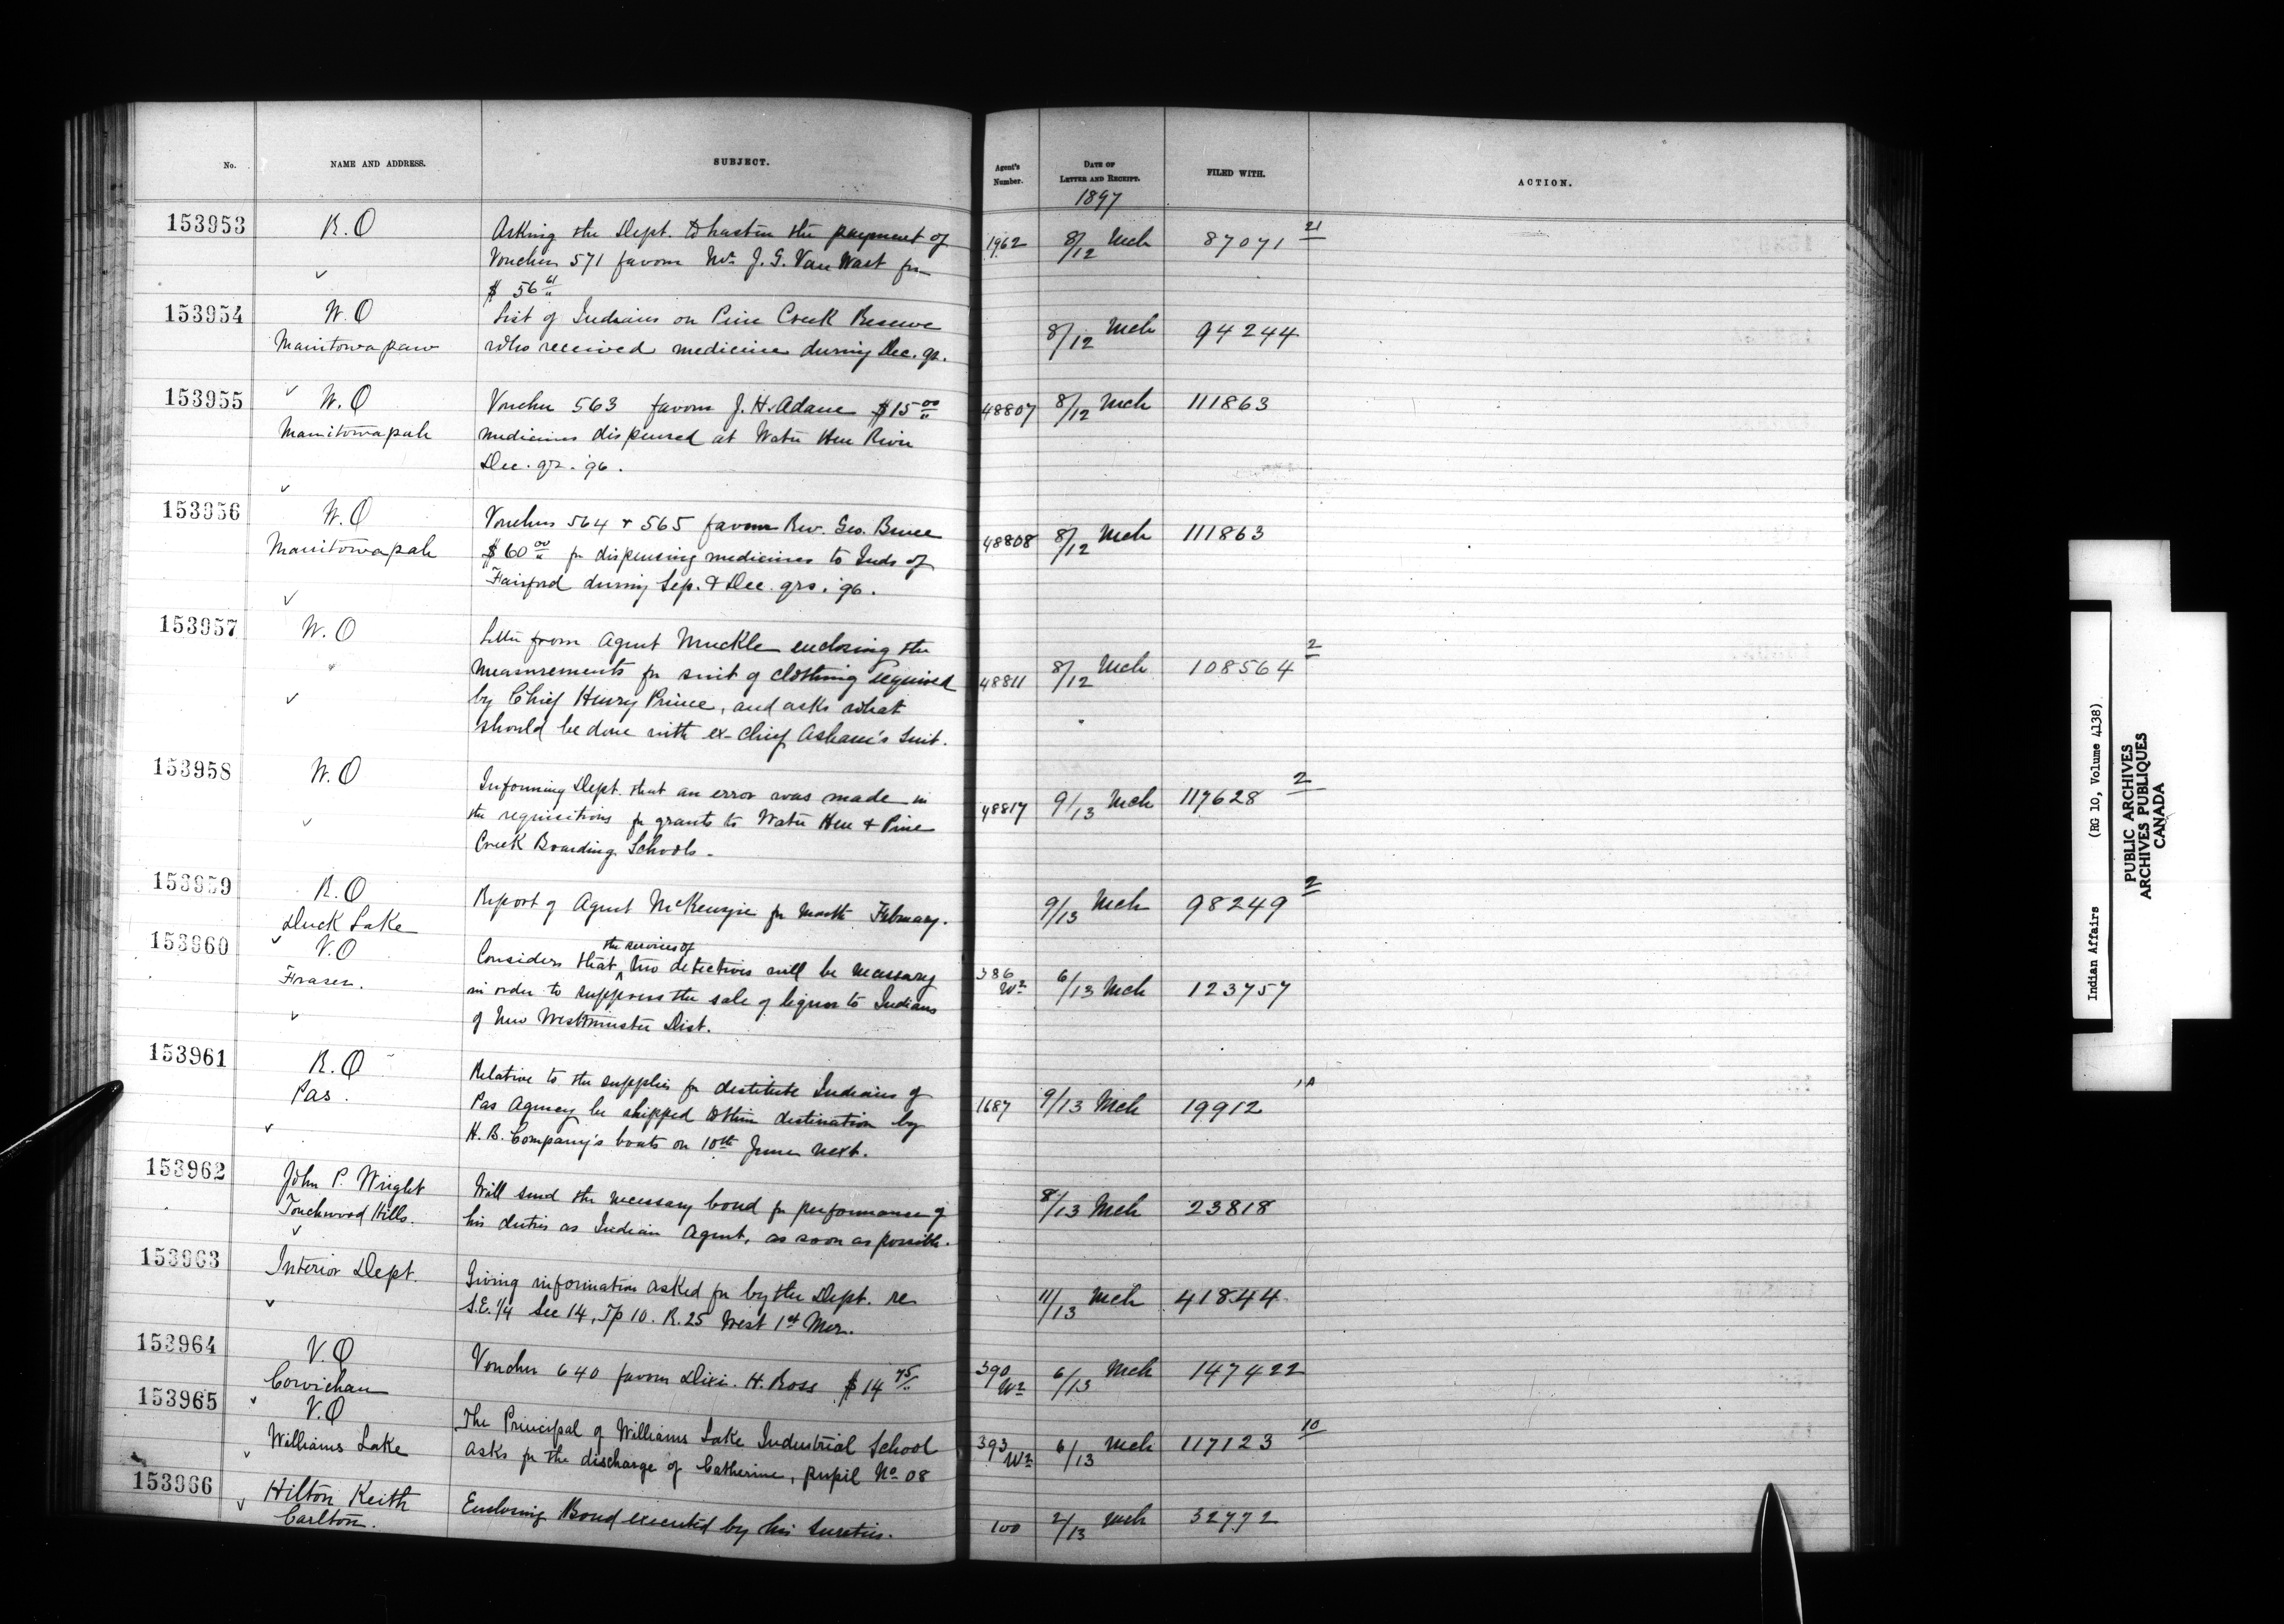 No.
NAME AND ADDRESS.
SUBJECT.
Agent's Number.
DATE OF LETTER AND RECEIPT.
FILED WITH.
ACTION.
1897
153953
R.O
Asking the Dept. to hasten the payment of
Voucher 571 favour Mr. J. G. Van Wart for
$ 56 61
1962
8/12 Mch
87071 21
153954
W.O
Manitowapaw
List of Indians on Pine Creek Reserve
who received medicine during Dec. qr.
8/12 Mch
94244
153955
W.O
Manitowapah
Voucher 563 favour J. H. Adam $15 00
medicines dispensed at Water Hen River
Dec. qr. 96.
48807
8/12 Mch
111863
153956
W.O
Manitowapah
Vouchers 564 + 565 favour Rev. Geo. Bruce
$60 00 for dispensing medicines to Inds of
Fairford during Sep. & Dec. qrs. 96.
48808
8/12 Mch
111863
153957
W.O
"
Letter from Agent Muckle enclosing the
measurements for suit of clothing required
by Chief Henry Prince, and asks what
should be done with ex-Chief Asham's suit.
48811
8/12 Mch
108564 2
153958
W.O
Informing Dept. that an error was made in
the requisitions for grants to Water Hen & Pine
Creek Boarding Schools.
48817
9/13 Mch
117628 2
153959
R.O
Duck Lake
Report of Agent McKenzie for month February.
9/13 Mch
98249 2
153960
V.O
Fraser.
Considers that the services of two detectives will be necessary
in order to suppress the sale of liquor to Indians
of New Westminster Dist.
386
W2
6/13 Mch
123757
153961
R.O
Pas.
Relative to the supplies for destitute Indians of
Pas Agency be shipped to their destination by
H. B. Company's boats on 10th June next.
1687
9/13 Mch
19912 1A
153962
John P. Wright
Touchwood Hills.
Will send the necessary bond for performance of
his duties as Indian Agent, as soon as possible.
8/13 Mch
23818
153963
Interior Dept.
Giving information asked for by the Dept. re
S.E. 1/4 Sec 14, Tp 10. R. 25 West 1st Mer.
11/13 Mch
41844
153964
V.O
Cowichan
Voucher 640 favour Dixi. H. Ross $14 75
390
W2
6/13 Mch
147422
153965
V.O
Williams Lake
The Principal of Williams Lake Industrial School
asks for the discharge of Catherine, pupil No 08
393
W2
6/13 Mch
117123 10
153966
Hilton Keith
Carlton.
Enclosing Bond executed by his sureties.
100
2/13 Mch
32772
Indian Affairs (RG 10, Volume 4138)
PUBLIC ARCHIVES
ARCHIVES PUBLIQUES
CANADA